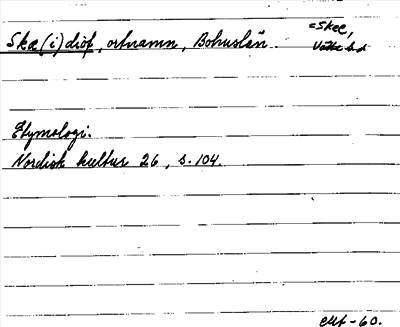 Skæ(i)diöf, ortnamn, Bohuslän.
=Skee,
Vätte hd
Etymologi.
Nordisk kultur 26, s. 104.
-60.